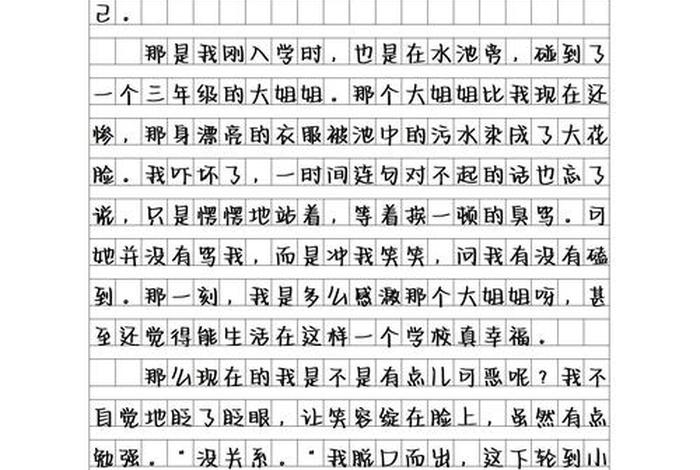 己.
那是我刚入学时,也是在水池旁,碰到了
一个三年级的大姐姐.那个大姐姐比我现在还
惨,那身漂亮的衣服被池中的污水染成了大花
脸.我吓坏了,一时间连句对不起的话也忘了
说,只是愣愣地站着,等着挨一顿的臭骂.可
她并没有骂我,而是冲我笑笑,问我有没有磕
到.那一刻,我是多么感激那个大姐姐呀,甚
至还觉得能生活在这样一个学校真幸福.
那么现在的我是不是有点儿可恶呢?我不
自觉地眨了眨眼,让笑容绽在脸上,虽然有点
勉强."没关系."我脱口而出,这下轮到小